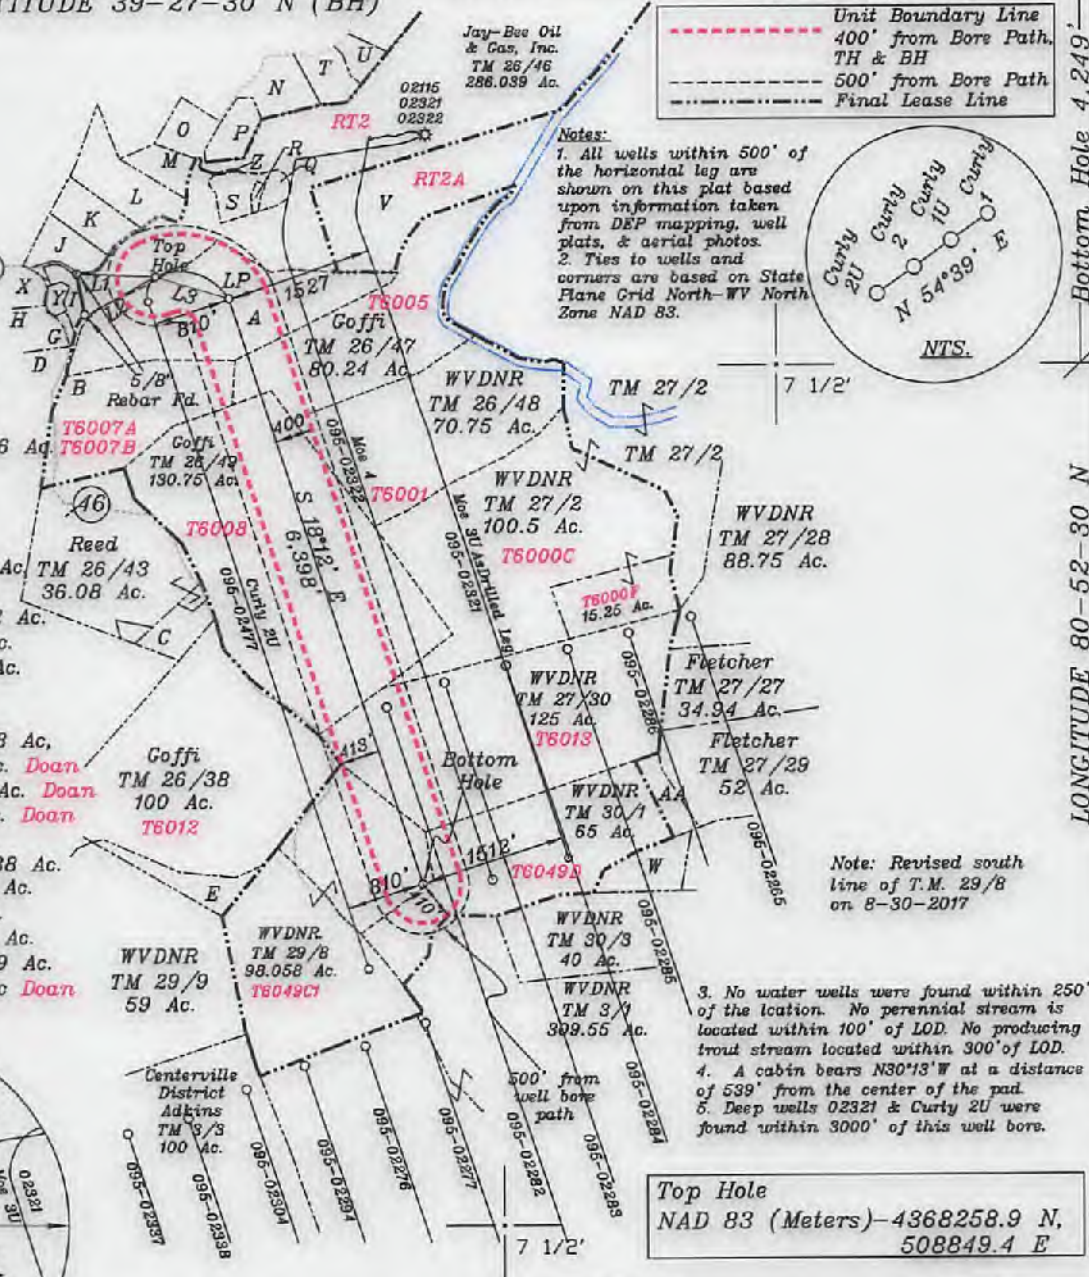 TITUDE 39-27-30 N (BH)
Unit Boundary Line
400' from Bore Path,
TH & BH
500' from Bore Path
Final Lease Line
Bottom Hole 4,249'
LONGITUDE 80-52-30 N
Jay-Bee Oil
& Gas, Inc.
TM 26/46
286.039 Ac.
02115
02321
02322
U
T
N
O
P
RT2
M
Z
R
Q
S
L
K
J
V
RT2A
Notes:
1. All wells within 500' of
the horizontal leg are
shown on this plat based
upon information taken
from DEP mapping, well
plats, & aerial photos.
2. Ties to wells and
corners are based on State
Plane Grid North-WV North
Zone NAD 83.
Curly
2U
Curly
2
Curly
1U
Curly
1
N 54°39' E
NTS.
7 1/2'
Top
Hole
LP
L1
L3
X
Y
I
H
G
D
B
A
810'
1527'
T6005
Goffi
TM 26/47
80.24 Ac.
5/8"
Rebar Fd.
T6007A
T6007B
6 Ac.
Goffi
TM 26/42
130.75 Ac.
400'
Moe 4
095-02322
WVDNR
TM 26/48
70.75 Ac.
TM 27/2
TM 27/2
T6001
WVDNR
TM 27/2
100.5 Ac.
T6000C
WVDNR
TM 27/28
88.75 Ac.
46
Reed
TM 26/43
36.08 Ac.
Ac.
T6008
S 18°12' E
6,398'
Curly 2U
095-02477
Moe 3U AsDrilled Leg
095-02321
T6000F
15.25 Ac.
C
Ac.
c.
Ac.
095-02286
Fletcher
TM 27/27
34.94 Ac.
WVDNR
TM 27/30
125 Ac.
T6013
Fletcher
TM 27/29
52 Ac.
3 Ac,
c. Doan
Ac. Doan
. Doan
38 Ac.
Ac.
Ac.
9 Ac.
c Doan
Goffi
TM 26/38
100 Ac.
T6012
413'
Bottom
Hole
WVDNR
TM 30/1
65 Ac.
AA
W
095-02265
1512'
T6049B
810'
410'
E
Note: Revised south
line of T.M. 29/8
on 8-30-2017
WVDNR
TM 29/9
59 Ac.
WVDNR
TM 29/8
98.058 Ac.
T6049C1
WVDNR
TM 30/3
40 Ac.
095-02285
WVDNR
TM 3/1
399.55 Ac.
3. No water wells were found within 250'
of the lcation. No perennial stream is
located within 100' of LOD. No producing
trout stream located within 300'of LOD.
4. A cabin bears N30°13'W at a distance
of 539' from the center of the pad.
5. Deep wells 02321 & Curly 2U were
found within 3000' of this well bore.
Centerville
District
Adkins
TM 3/3
100 Ac.
500' from
well bore
path
095-02337
095-02338
095-02304
095-02294
095-02276
095-02277
095-02282
095-02283
095-02284
02321
Moe 3U
7 1/2'
Top Hole
NAD 83 (Meters)-4368258.9 N,
508849.4 E